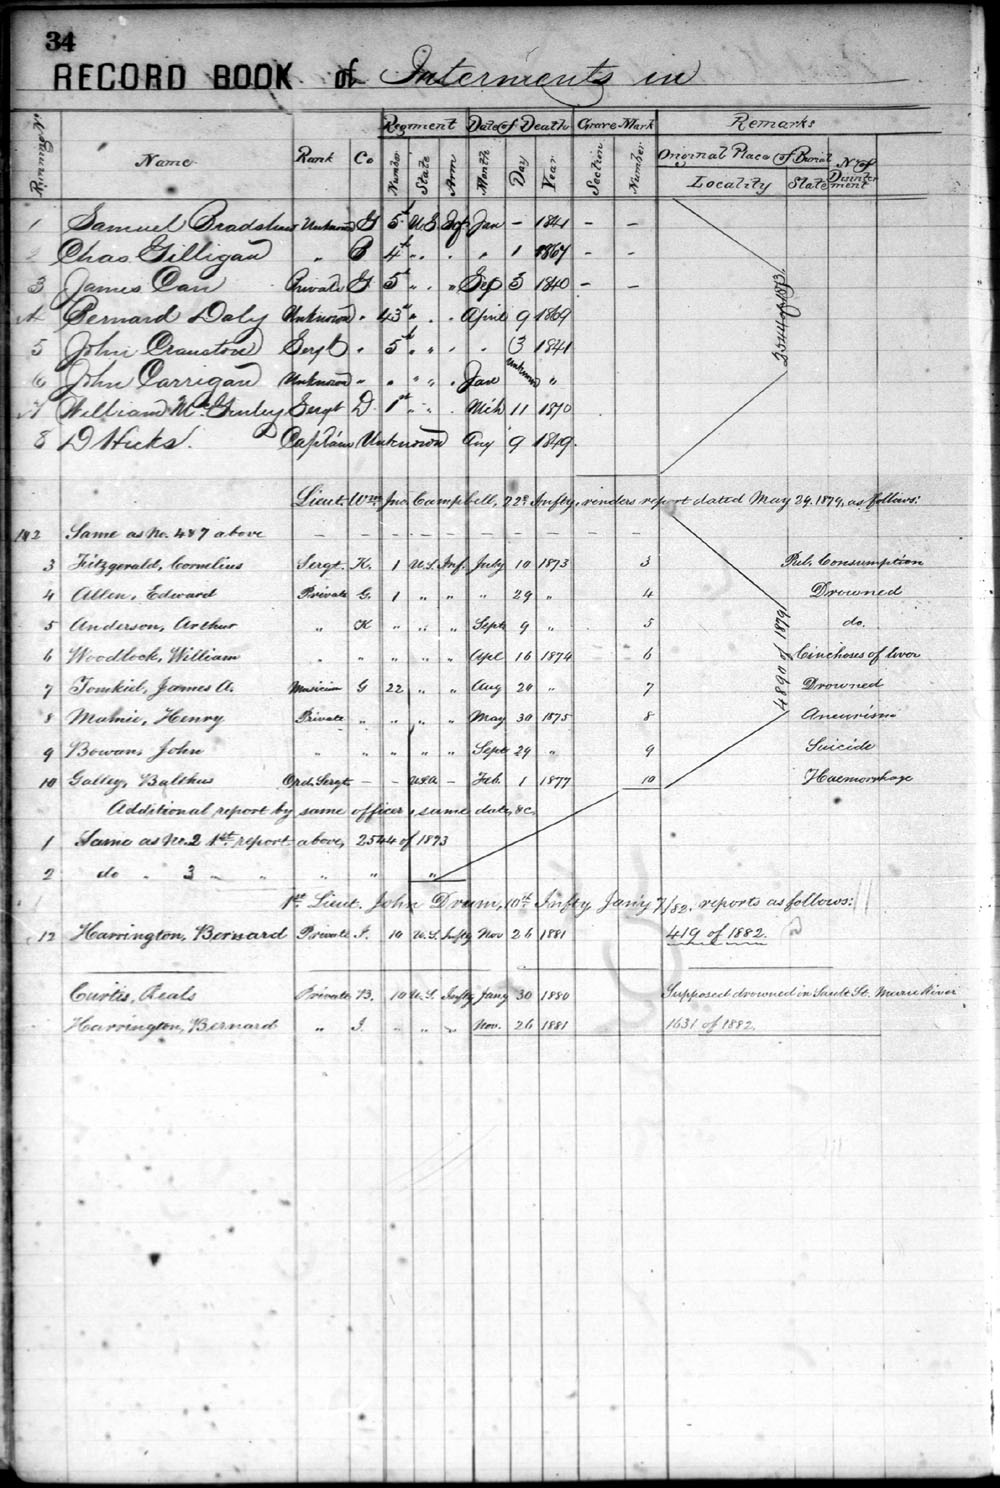 34
RECORD BOOK of Interments in
Running No. Name Rank Co Regiment Date of Death Grave Mark Remarks
Number State Arm Month Day Year Section Number Original Place of Burial No of Disinterment
Locality State
1 Samuel Bradshaw Unknown G 5t U.S. Inf. Jan - 1841 - -
2 Chas. Gilligan " B 4th " " " 1 1867 - -
3 James Carr Private G 5t " " Sep 3 1840 - -
4 Bernard Daly Unknown " 43d " " April 9 1869
5 John Cranston Sergt " 5th " " " 13 1841
6 John Carrigan Unknown " " " " Jan Unknown "
7 William McGinley Sergt D 1st " " Mch 11 1870
8 D Hicks. Captain Unknown Aug 9 1849.
2544 of 1873.
Lieut. Wm Jno. Campbell, 22d Infty, renders report dated May 29, 1879, as follows:
1&2 Same as No. 4&7 above - - - - - - - - - -
3 Fitzgerald, Cornelius Sergt. K. 1 U.S. Inf. July 10 1873 3 Consumption
4 Allen, Edward Private G. 1 " " " 29 " 4 Drowned
5 Anderson, Arthur " K " " " Sept 9 " 5 do.
6 Woodlock, William " " " " " Apl 16 1874 6 of liver
7 Tomkiel, James A. Musician G 22 " " Aug 20 " 7 Drowned
8 Mamie, Henry Private " " " " May 30 1875 8 Aneurism
9 Bowan, John " " " " " Sept 29 " 9 Suicide
10 Galley, Balthus Ord. Sergt - - U.S.A. - Feb. 1 1877 10 Haemorrhage
4890 of 1879
Additional report by same officer, same date, &c.
1 Same as No. 2 1st report above, 2544 of 1873
2 do " 3 " " " " "
1st Lieut. John Drum, 10th Infty, Jan'y 7/82, reports as follows:
12 Harrington, Bernard Private I. 10 U.S. Infty Nov 26 1881 419 of 1882.
Curtis, Reals Private B. 10 U.S. Infty Jany 30 1880 Supposed drowned in Sault St. Marie River
Harrington, Bernard " I. " " " Nov. 26 1881 1631 of 1882.